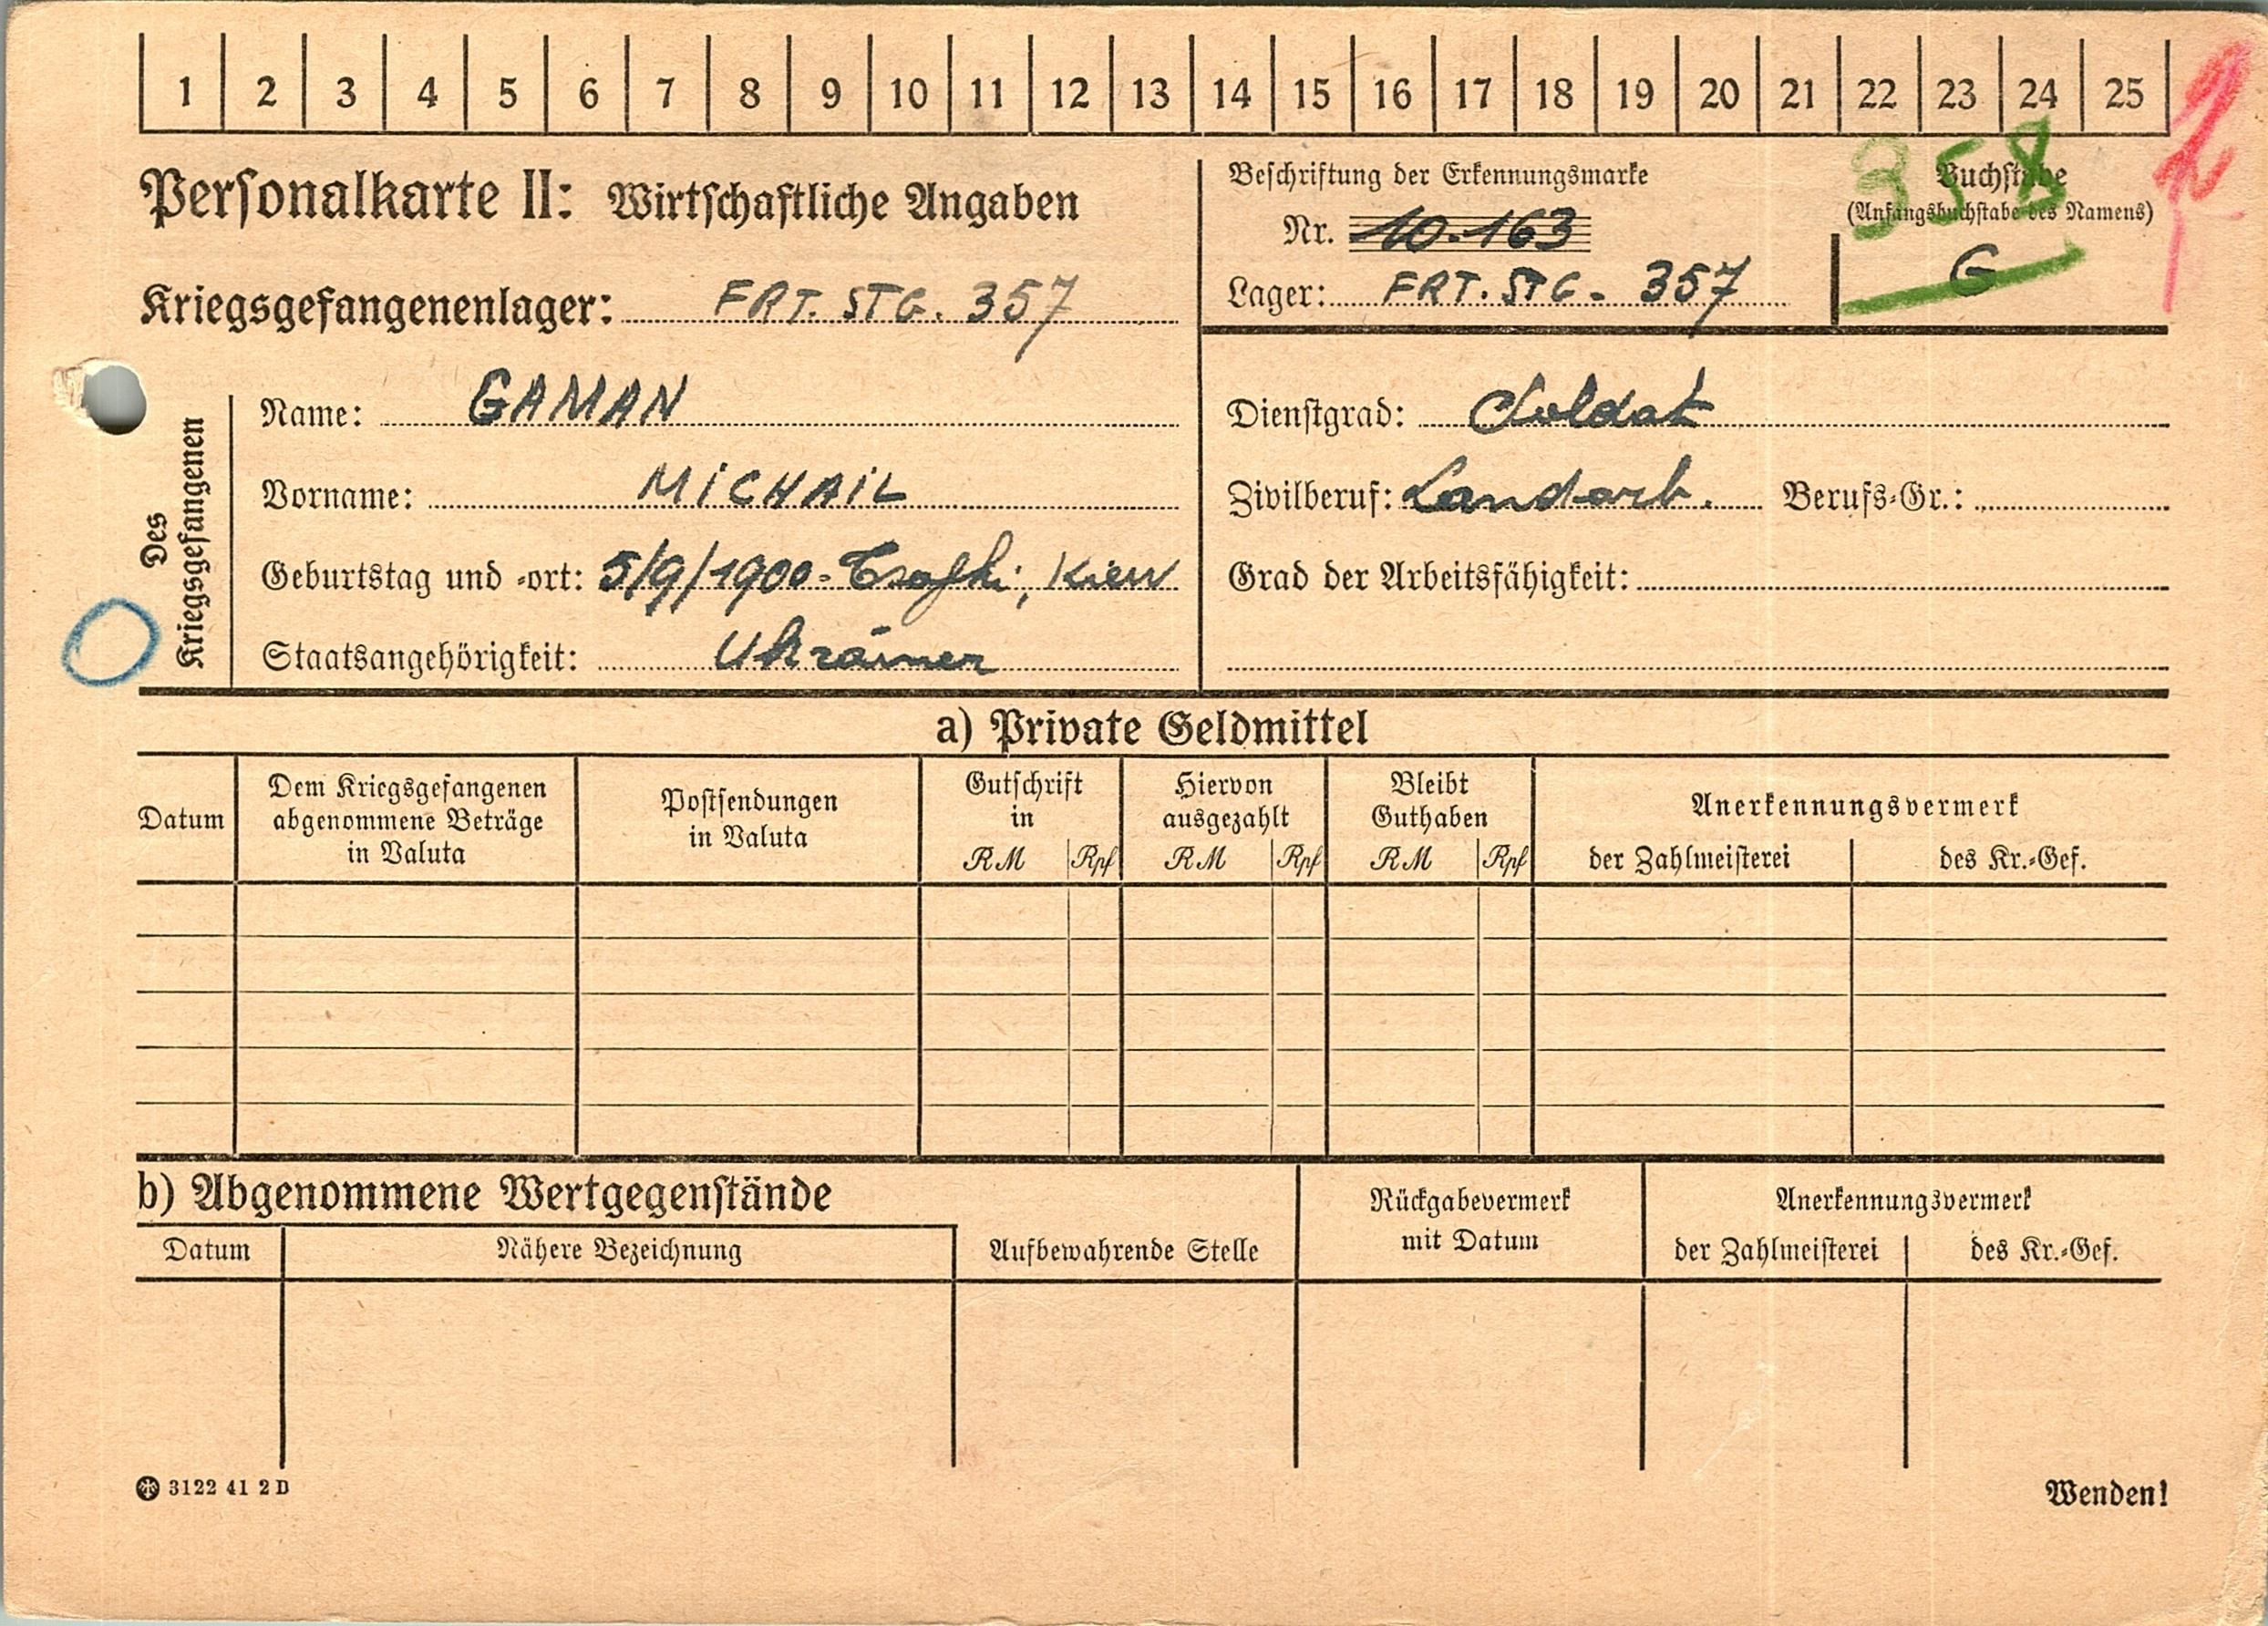 1 2 3 4 5 6 7 8 9 10 11 12 13 14 15 16 17 18 19 20 21 22 23 24 25
Personalkarte II: Wirtschaftliche Angaben
Kriegsgefangenenlager: FRT. STG. 357
Beschriftung der Erkennungsmarke
Nr. 10-163
Lager: FRT. STG - 357
Buchstabe
(Anfangsbuchstabe des Namens)
G
358
Des
Kriegsgefangenen
Name: GAMAN
Vorname: MiCHAiL
Geburtstag und -ort: 5/9/1900 - Kiew
Staatsangehörigkeit: Ukrainer
Dienstgrad: Soldat
Zivilberuf: Landarb. Berufs-Gr.:
Grad der Arbeitsfähigkeit:
a) Private Geldmittel
Datum
Dem Kriegsgefangenen
abgenommene Beträge
in Valuta
Postsendungen
in Valuta
Gutschrift
in
RM Rpf
Hiervon
ausgezahlt
RM Rpf
Bleibt
Guthaben
RM Rpf
Anerkennungsvermerk
der Zahlmeisterei des Kr.-Gef.
b) Abgenommene Wertgegenstände
Datum Nähere Bezeichnung Aufbewahrende Stelle
Rückgabevermerk
mit Datum
Anerkennungsvermerk
der Zahlmeisterei des Kr.-Gef.
3122 41 2 D
Wenden!